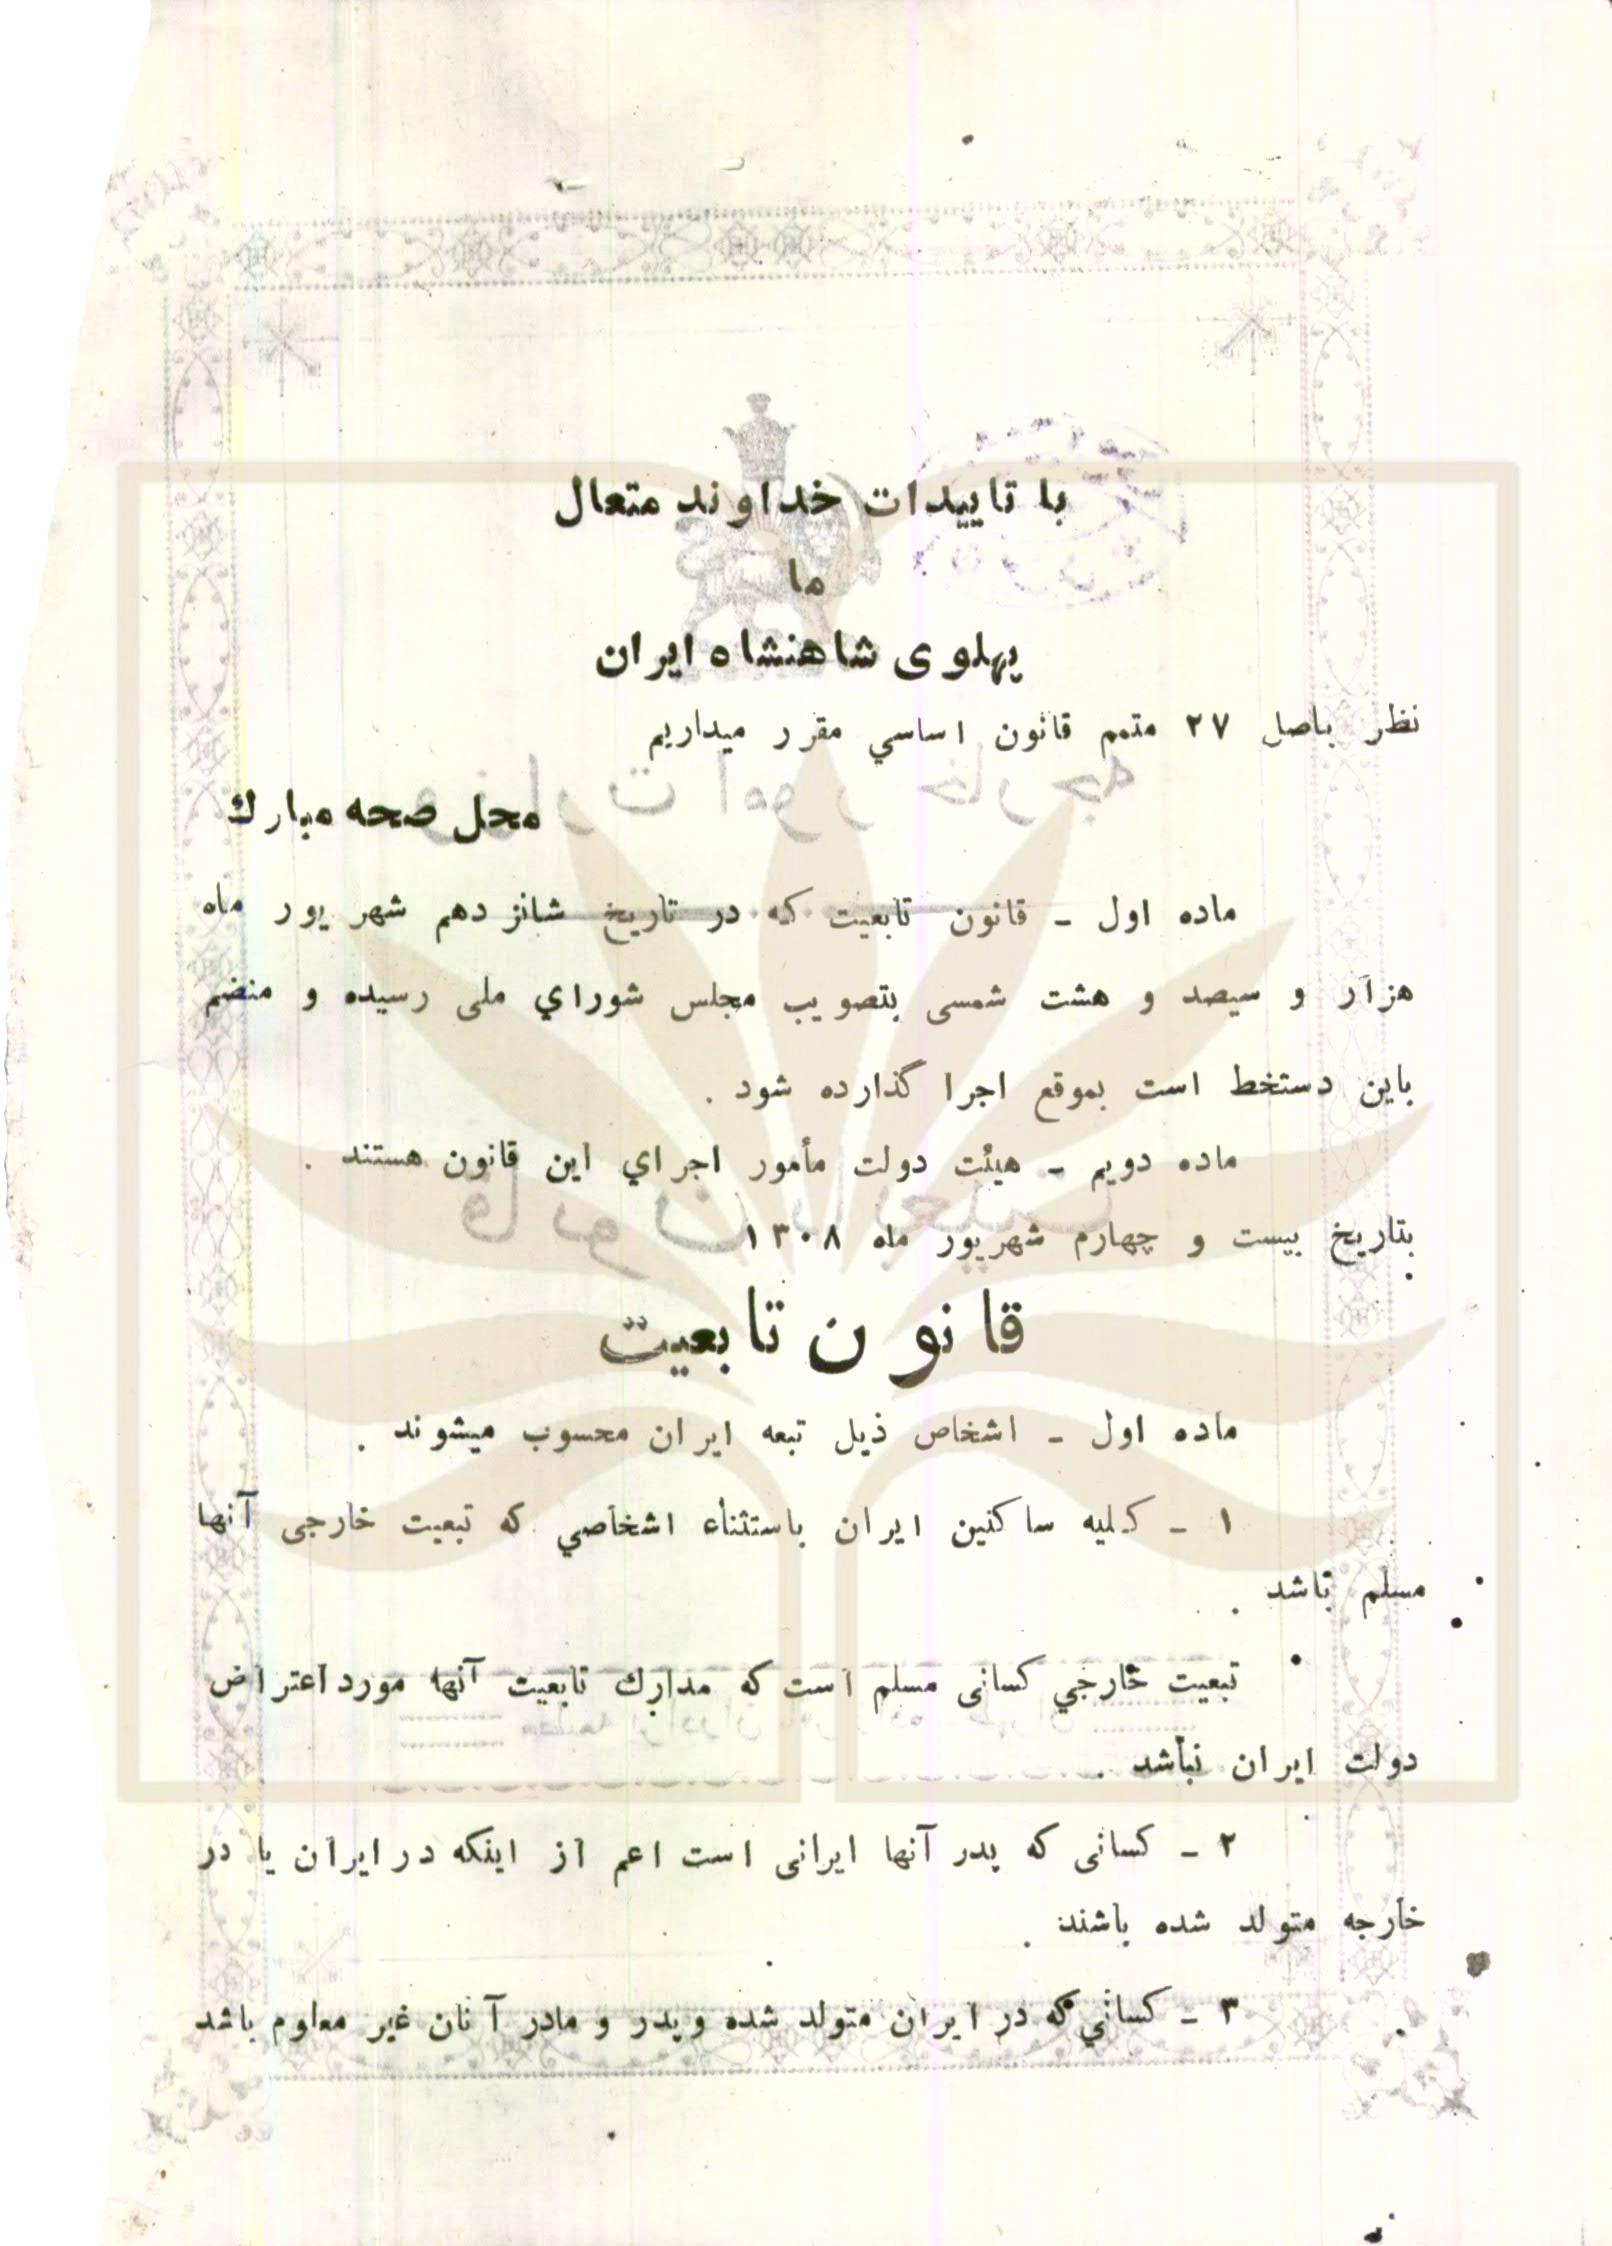 با تاییدات خداوند متعال
ما
پهلوی شاهنشاه ایران
نظر باصل ۲۷ متمم قانون اساسي مقرر میداریم
محل صحه مبارك
ماده اول ـ قانون تابعیت که در تاریخ شانزدهم شهریور ماه
هزار و سیصد و هشت شمسی بتصویب مجلس شوراي ملی رسیده و منضم
باین دستخط است بموقع اجرا گذارده شود .
ماده دویم ـ هیئت دولت مأمور اجراي این قانون هستند .
بتاریخ بیست و چهارم شهریور ماه ۱۳۰۸
قانون تابعیت
ماده اول ـ اشخاص ذیل تبعه ایران محسوب میشوند .
۱ ـ کلیه ساکنین ایران باستثناء اشخاصي که تبعیت خارجی آنها
مسلم باشد .
تبعیت خارجي کسانی مسلم است که مدارك تابعیت آنها مورد اعتراض
دولت ایران نباشد .
۲ ـ کسانی که پدر آنها ایرانی است اعم از اینکه در ایران یا در
خارجه متولد شده باشند .
۳ ـ کساني که در ایران متولد شده و پدر و مادر آنان غیر معلوم باشد